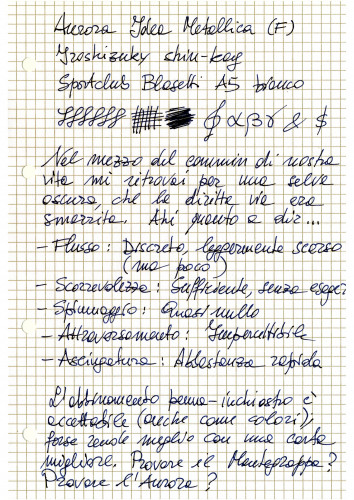 Aurora Idea Metallica (F)
Iroshizuku shin-kay
Sportclub Blasetti A5 bianco
∮ α β γ & $
Nel mezzo del cammin di nostra
vita mi ritrovai per una selva
oscura, che la diritta via era
smarrita. Ahi quanto a dir...
- Flusso: Discreto, leggermente scarso
(ma poco)
- Scorrevolezza: Sufficiente, senza esager
- Spiumaggio: Quasi nullo
- Attraversamento: Impercettibile
- Asciugatura: Abbastanza rapida
L'abbinamento penna-inchiostro è
accettabile (anche come colori),
forse rende meglio con una carta
migliore. Provare il Montegrappa?
Provare l'Aurora?